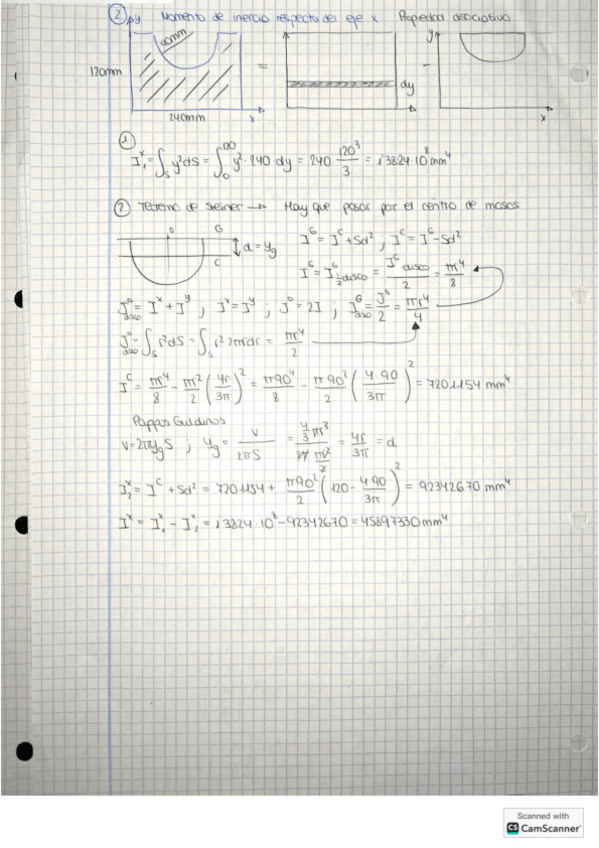 ② y Momento de inercia respecto del eje x Propiedad asociativa
90mm
120mm
=
dy
-
y
240mm
x
x
①
I₁ˣ = ∫s y²dS = ∫₀¹²⁰ y²·240 dy = 240·120³/3 = 1,3824·10⁸ mm⁴
② Teorema de Steiner → Hay que pasar por el centro de masas
0 G
d = yg
C
I^G = I^C + Sd² ; I^C = I^G - Sd²
I^G = I^G ½disco = I^G disco/2 = πr⁴/8
J⁰disco = Iˣ + Iʸ ; Iˣ = Iʸ ; J⁰ = 2I ; I^G disco = J⁰/2 = πr⁴/4
J⁰disco = ∫s r²dS = ∫s r² 2πrdr = πr⁴/2
I^C = πr⁴/8 - πr²/2 (4r/3π)² = π90⁴/8 - π90²/2 (4·90/3π)² = 7201154 mm⁴
Pappus Guldinos
V = 2πygS ; yg = V/2πS = 4/3πr³/2π πr²/2 = 4r/3π = d
I₂ˣ = I^C + Sd² = 7201154 + π90²/2 (120 - 4·90/3π)² = 92342670 mm⁴
Iˣ = I₁ˣ - I₂ˣ = 1,3824·10⁸ - 92342670 = 45897330 mm⁴
Scanned with
CS CamScanner